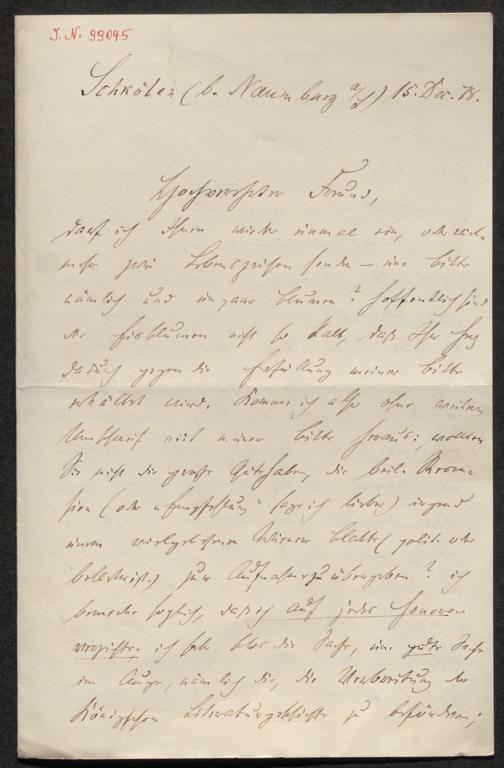 J. N. 99045
Schkölen (b. Naumburg a/S) 15. Dec. 78.
Hochverehrter Freund,
darf ich Ihnen wieder einmal ein, oder vielm
mehr zwei Lebenszeichen senden – eine Bitte
nämlich und ein paar Blumen? Hoffentlich sind
die Eisblumen nicht so kalt, daß Ihr Herz
dadurch gegen die Erfüllung meiner Bitte
erkältet wird. Komme ich also ohne weiteren
Umschweif mit meiner Bitte heraus: wollten
Sie nicht die große Güte haben, die beil. Recen-
sion (oder „Empfehlung" sage ich lieber) irgend
einem vielgelesenen Wiener Blatte (polit. oder
belletrist.) zur Aufnahme zu übergeben? Ich
bemerke sogleich, daß ich auf jedes Honorar
verzichte. Ich habe blos die Sache, eine gute Sache
im Auge, nämlich die, die Verbreitung der
König'schen Literaturgeschichte zu befördern;